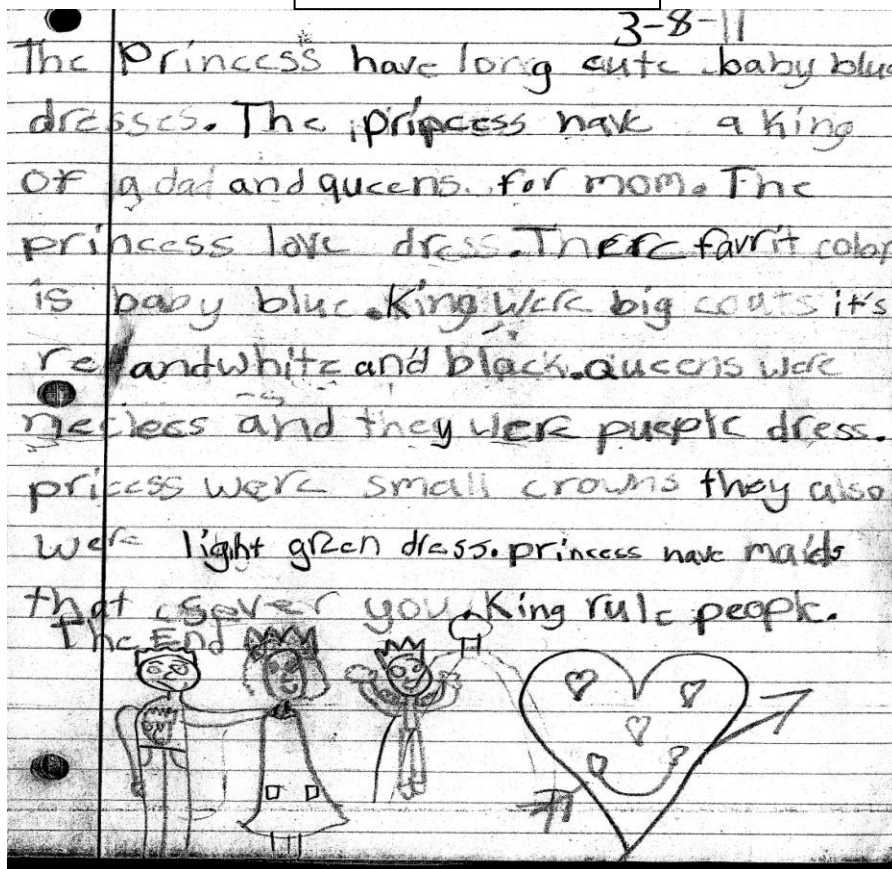 3-8-11
The Princess have long cute baby blue
dresses. The princess have a king
of a dad and queens. for mom. The
princess love dress. There favrit color
is baby blue. King were big coats it's
red and white and black. queens were
necless and they were pueple dress.
pricess were small crowns they also
were light green dress. princess have maids
that server you. King rule people.
The End